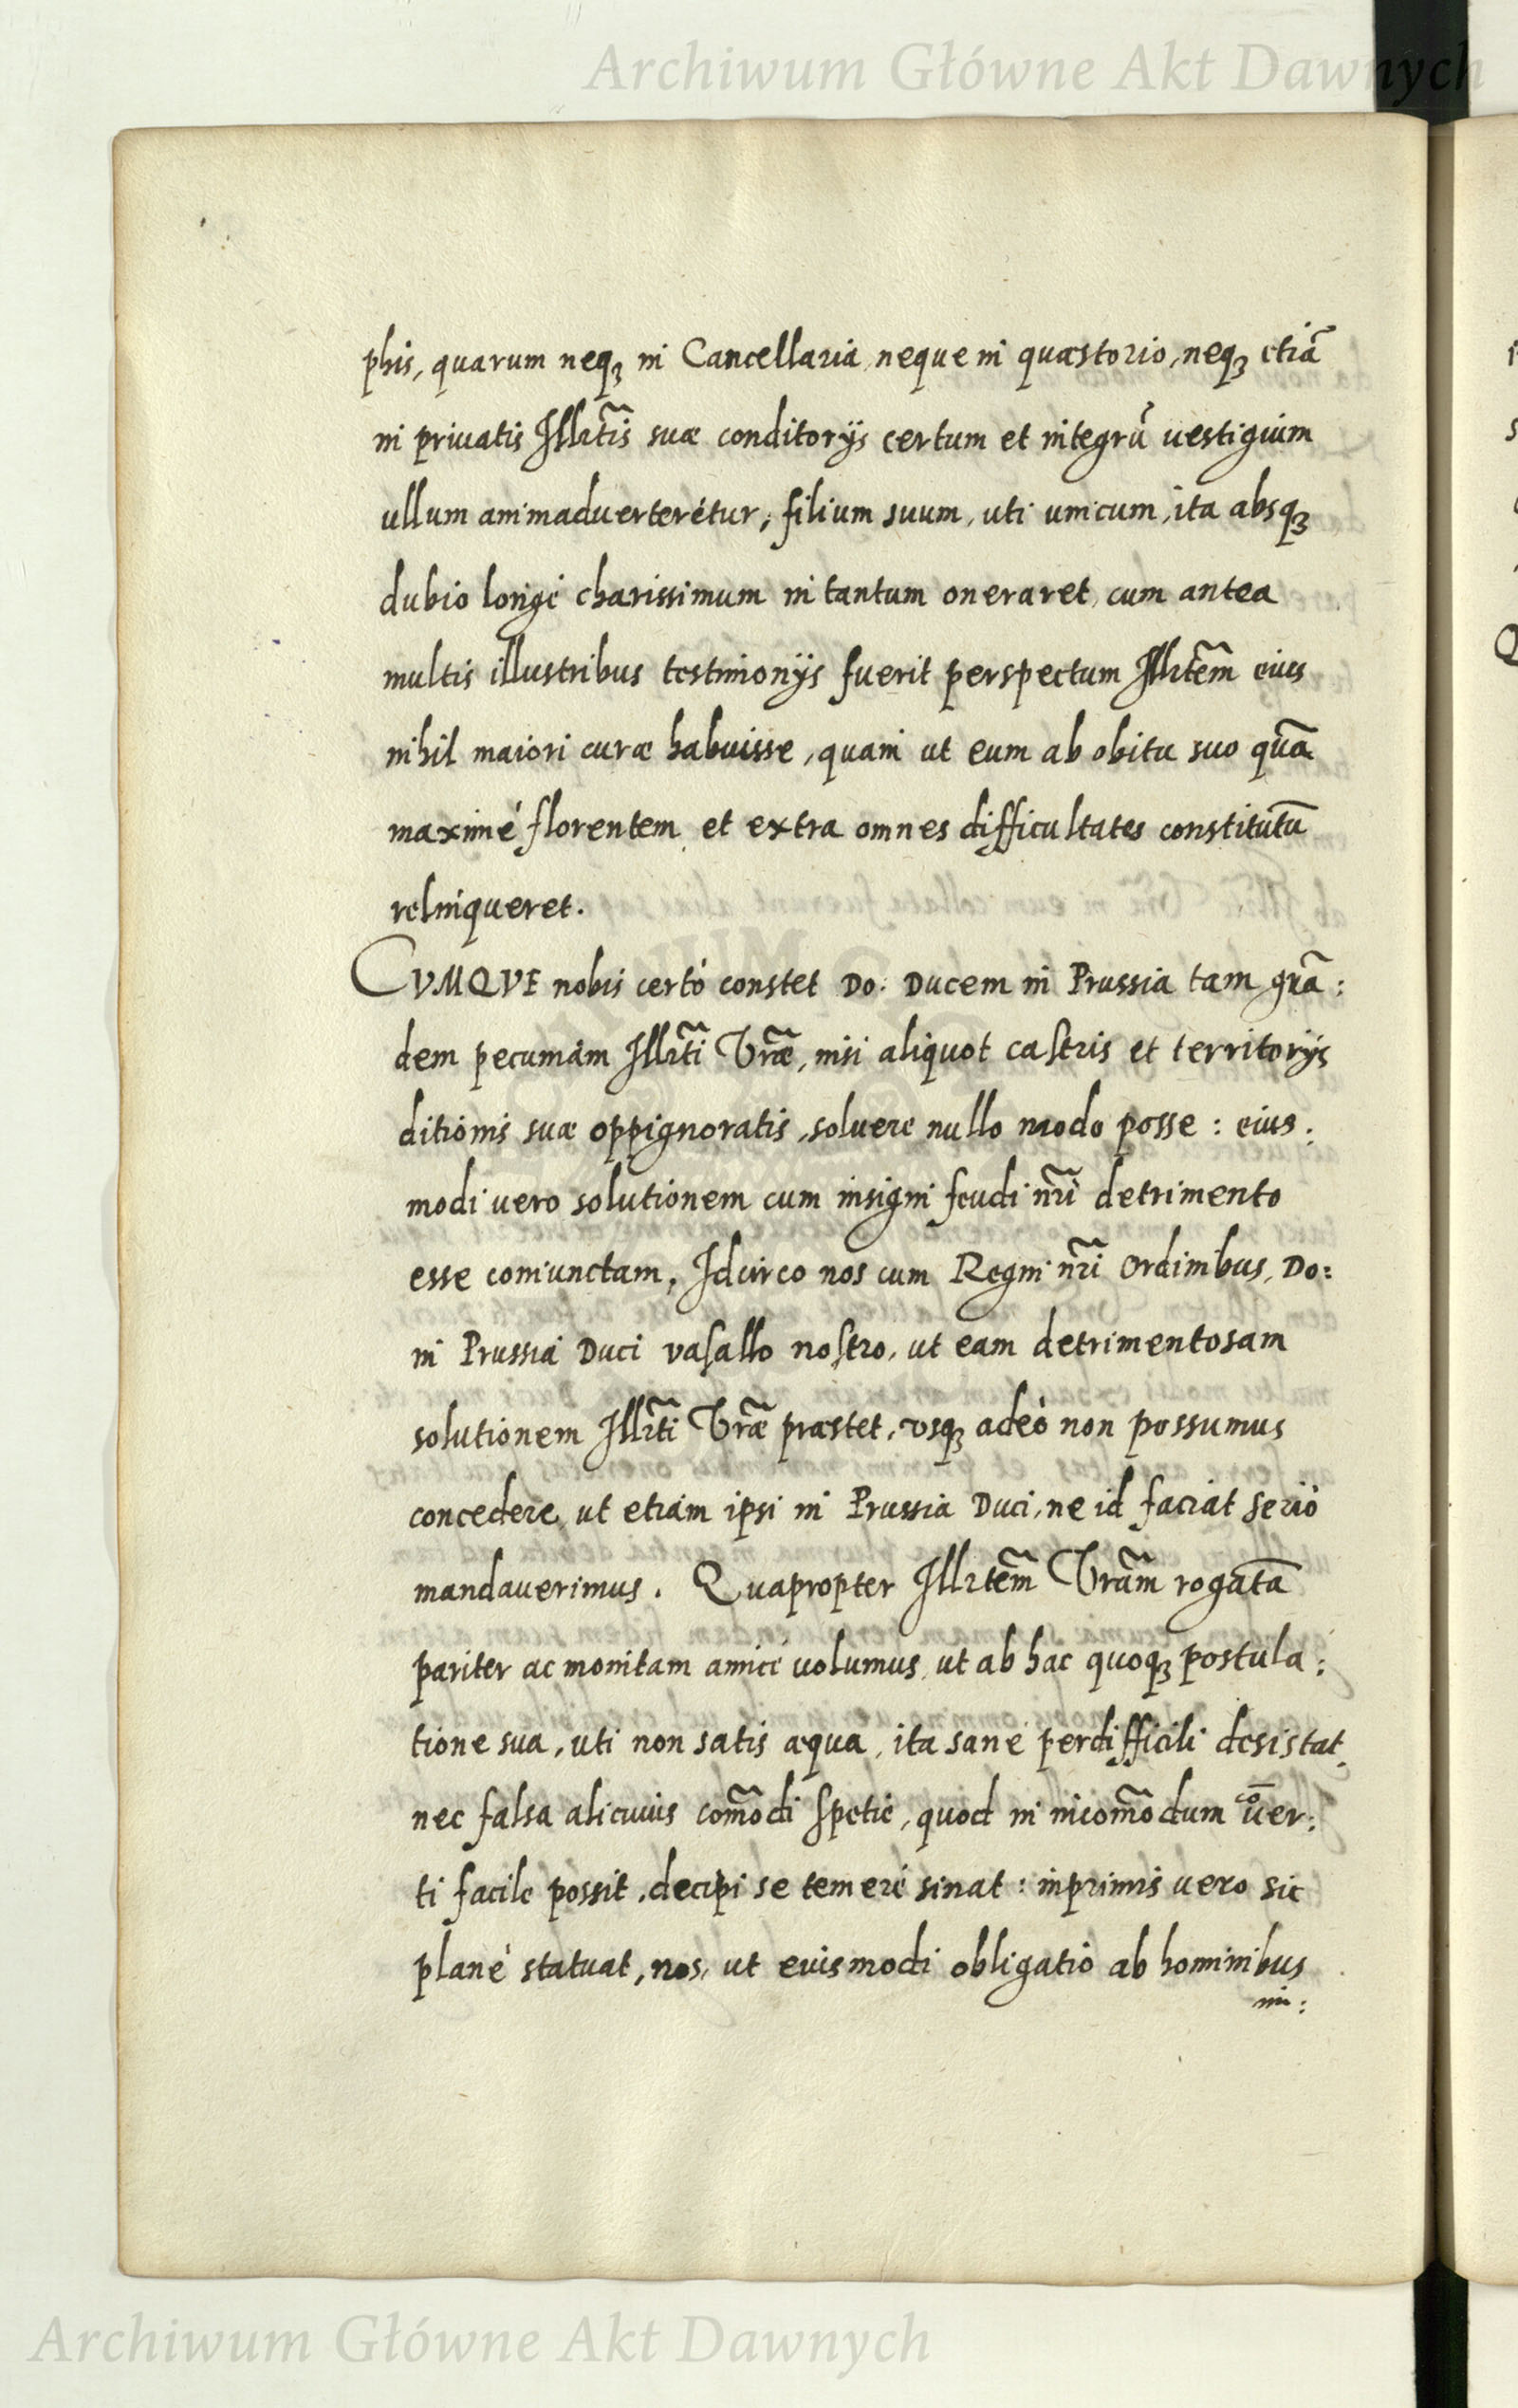 Archiwum Główne Akt Dawnych
phis, quarum neqꝫ in Cancellaria, neque in quæstorio, neqꝫ etiã
in priuatis Illrt̃is suæ conditorijs certum et integrũ uestigium
ullum animaduerterétur, filium suum, uti unicum, ita absqꝫ
dubio longè charissimum in tantum oneraret, cum antea
multis illustribus testimonijs fuerit perspectum Illrtẽm eius
nihil maiori curæ habuisse, quam ut eum ab obitu suo quã
maximè florentem et extra omnes difficultates constitutũ
relinqueret.
CVMQVE nobis certò constet Do: Ducem in Prussia tam grã:
dem pecuniam Illrt̃i Vr̃æ, nisi aliquot castris et territorijs
ditionis suæ oppignoratis, soluere nullo modo posse: eius:
modi uero solutionem cum insigni feudi nr̃i detrimento
esse coniunctam, Idcirco nos cum Regni nr̃i Ordinibus, Do:
in Prussia Duci vasallo nostro, ut eam detrimentosam
solutionem Illrt̃i Vr̃æ præstet, vsqꝫ adeò non possumus
concedere, ut etiam ipsi in Prussia Duci, ne id faciat seriò
mandauerimus. Quapropter Illrtẽm Vrãm rogatã
pariter ac monitam amicè uolumus, ut ab hac quoqꝫ postula:
tione sua, uti non satis æqua, ita sanè perdifficili desistat,
nec falsa alicuius com̃odi spetie, quod in incom̃odum cõuer:
ti facile possit, decipi se temerè sinat: inprimis uero sic
planè statuat, nos, ut euismodi obligatio ab hominibus
ni:
Archiwum Główne Akt Dawnych